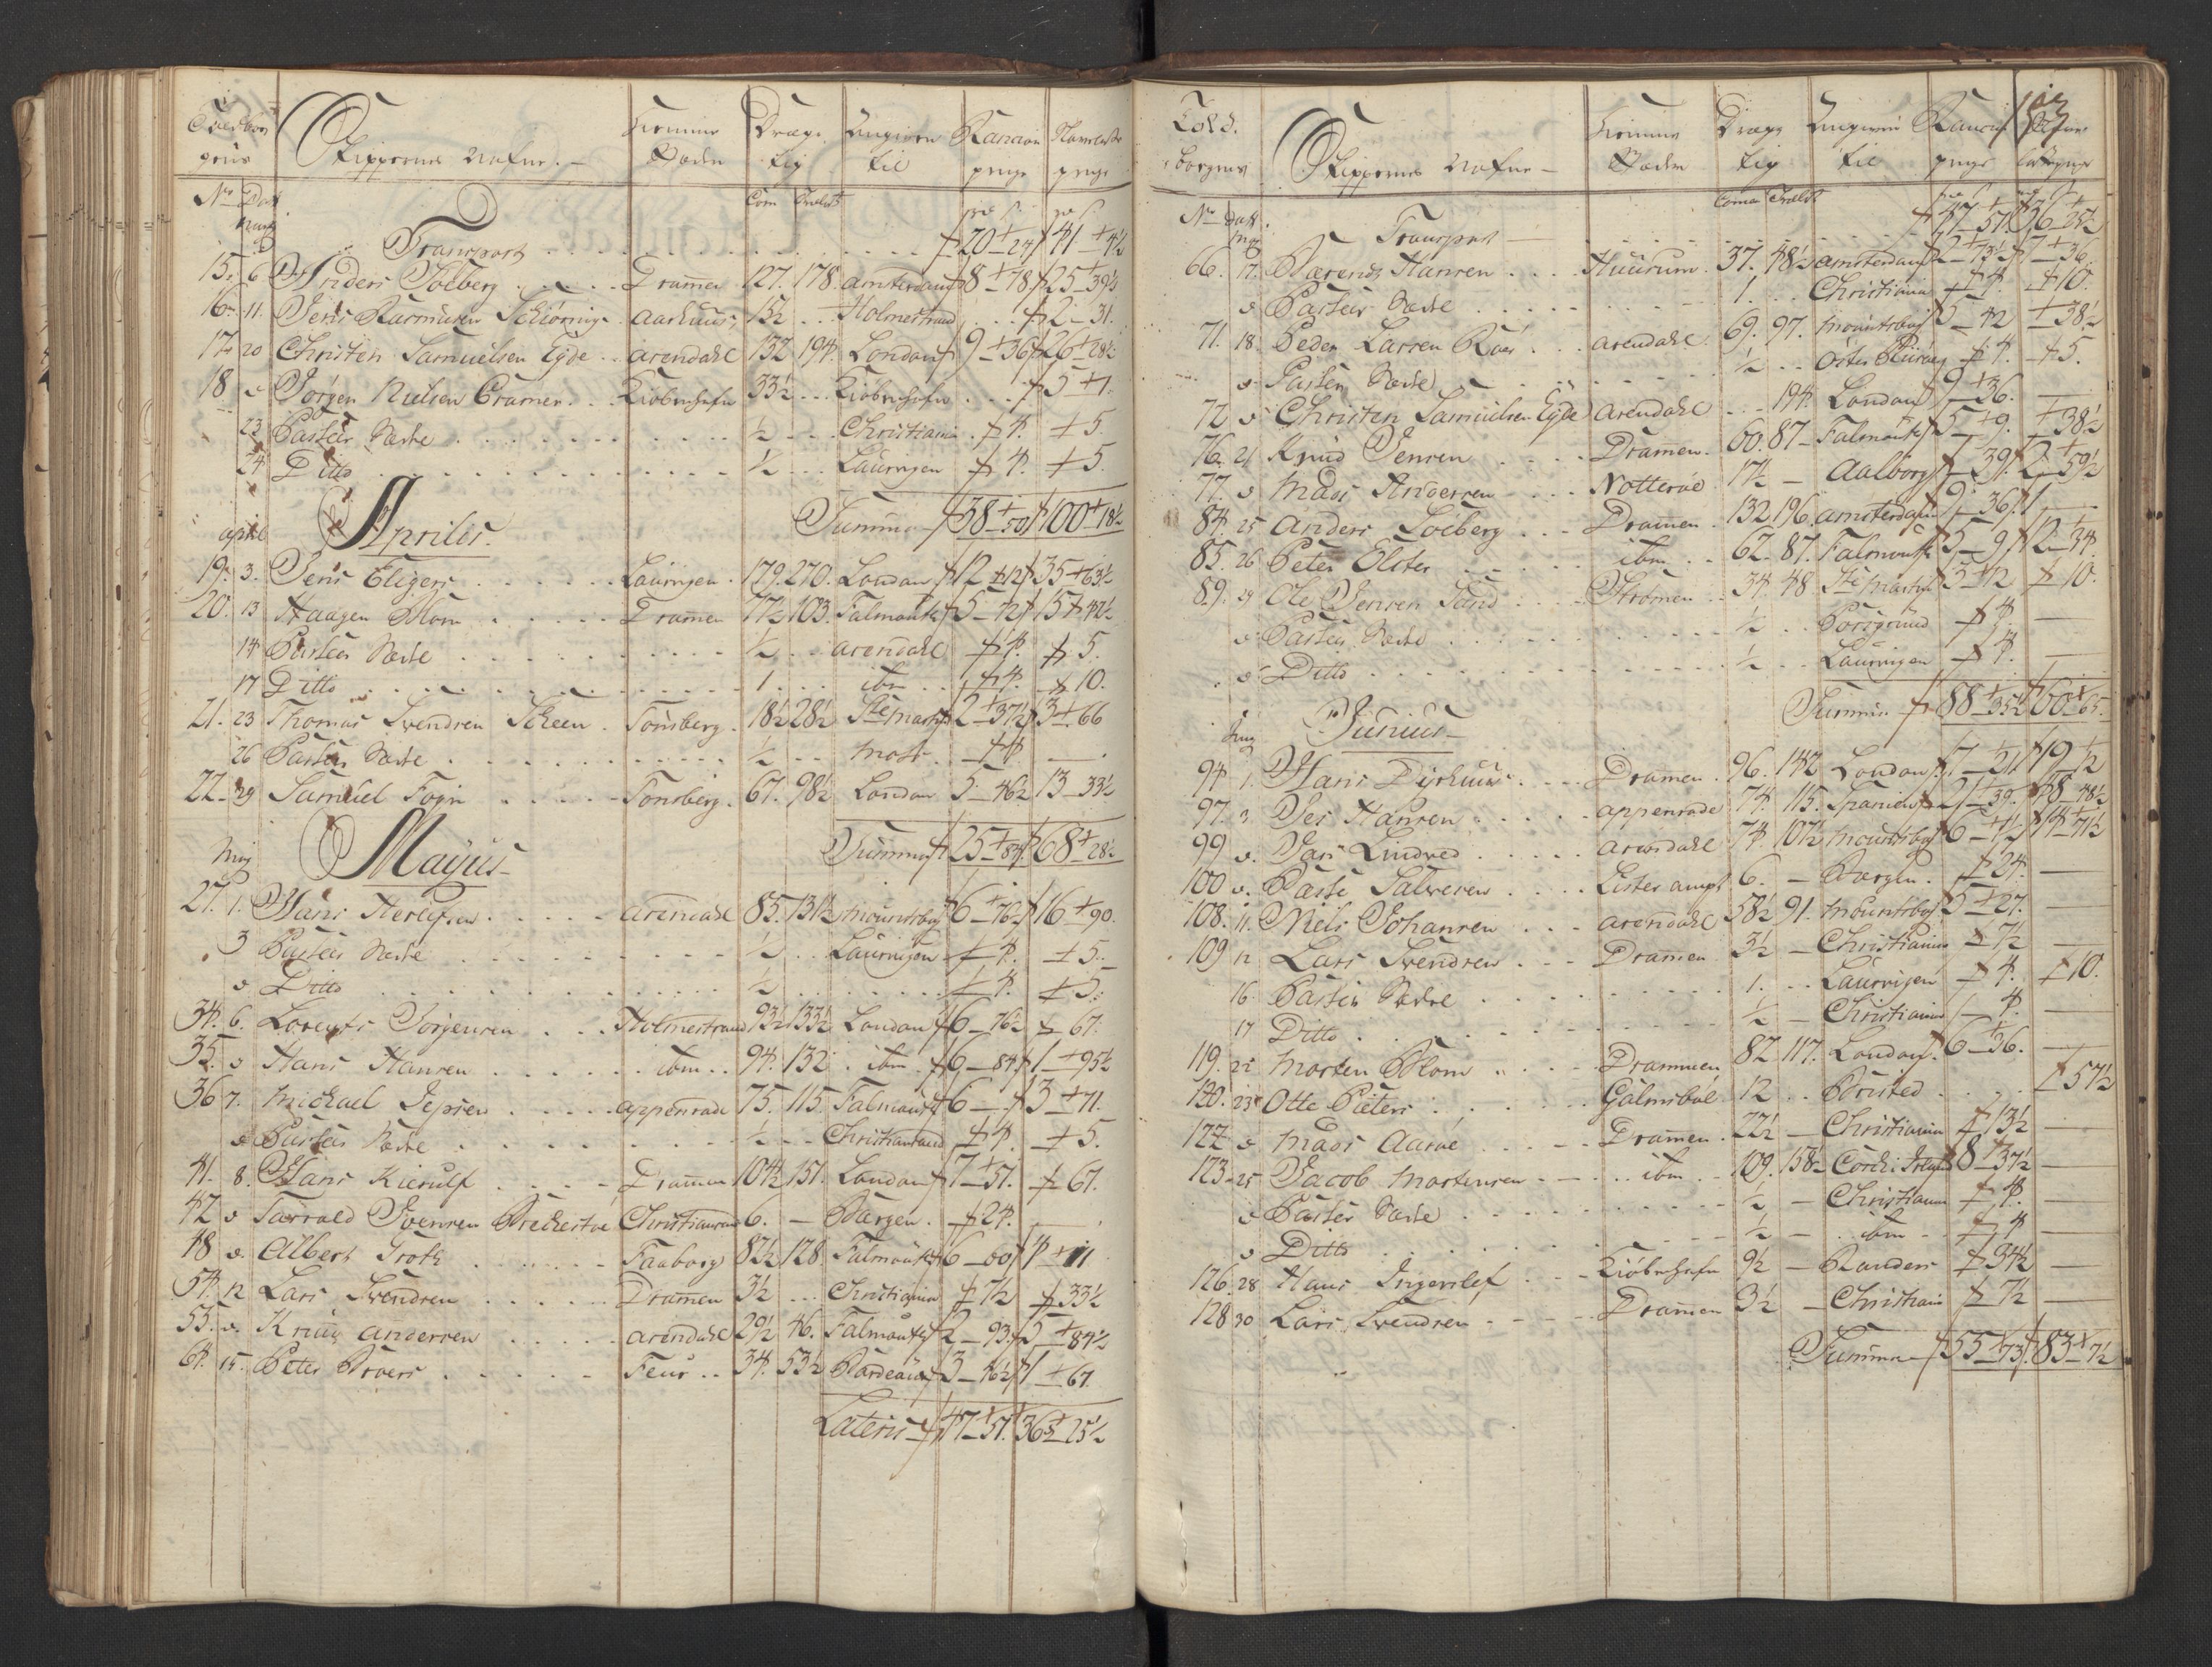 Skippernes Nafne.
Hiemme Staden
Dræg- tig
Angiven til
No Dat
Com Træl
Transport 20 24 41 4½
15. 6 Anders Soeberg Dramen 127. 178. amsterdam 8 78. 25 39½
16 11. Jens Rasmusen Aarhuus 13½ Holmestrand 2 31.
17 20 Christen Samuelsen Eyde arendahl 132 194. London 9 36 26 28½
18 Jørgen Nielsen Cramer Kiøbenhafn 33½ Kiøbenhafn 5 1.
23 Partier Næste ½ Christiania 4. 5.
24 Ditto ½ Laurvigen 4. 5.
Summa 38 50 100 18½
Aprilis
april
19. 3. Jens Eligers Laurvigen 179. 270. London 12 12 35 63½
20. 13 Haagen Blom Dramen 77½ 103. Falmouth 5 72 15 42½
14 Partier Næste ½ arendahl 4. 5.
17 Ditto 1. ibm 4. 10.
21. 23 Thomas Svendsen Scheen Tønsberg 18½ 28½ St. Martin 2 37½ 3 66
26 Partier Næste ½ Moss 4.
22. 29 Samuel Foyn Tønsberg 67. 98½ London 5 46½ 13 33½
Summa 25 84 68 28½
Mayus
May
27. 1. Hans Herlofsen arendahl 85. 131½ Mountsbay 6 76½ 16 90.
3 Partier Næste ½ Laurvigen 4. 5.
Ditto ½ 4. 5.
34. 6. Lorents Jørgensen Holmestrand 93½ 133½ London 6 76½ 67.
35. Hans Hansen ibm 94. 132. ibm 6 84. 1 95½
36 7. Michael Jepsen appenrade 75. 115. Falmouth 6 3 71.
Partier Næste ½ Christiansand 4. 5.
41. 8. Hans Kierulf Dramen 104½ 151. London 7 51. 67.
42 Tarrald Svensen Brekestøe Christiansand 6. Bergen 24.
48 Albert Troth Faaborg 82½ 128. Falmouth 6 60 4 11
54. 12 Lars Svendsen Dramen 3½ Christiania 7½ 33½
55. Knud Andersen arendahl 29½ 46. Falmouth 2 93. 5 84½
64. 15. Peter Broers Feur 34. 53½ Bordeaux 3 46½ 1 67.
Lateris 47 51. 36 25½
Told- borgens
Skippernes Nafne
Hiemme Staden
Dræg- tig
Angiven til
No Dat
May
Transport 47 51. 36 25½
66. 17. Barend Hansen Huurum 37. 48½ amsterdam 2 73½ 7 36.
Partier Næste 1. Christiania 4. 10.
71. 18. Peder Larsen Roer arendahl 69. 97. Mountsbay 5 42 38½
Partier Næste ½ Øster Riisøer 4. 5.
72 Christen Samuelsen Eyde arendahl 194. London 9 36.
76. 21 Knud Jensen Dramen 60. 87 Falmouth 5 9. 38½
77. Mads Andersen Nøtterøe 17½ Aalborg 39. 2 59½
84. 25 Anders Soeberg Dramen 132 196. amsterdam 9 36. 1
85. 26 Peter Elster ibm 62. 87. Falmouth 5 9 12 34
89. 29 Ole Jensen Sand Strømen 34. 48 St. Martin 3 42 10.
Partier Næste ½ Porsgrund 4.
Ditto ½ Laurvigen 4.
Summa 88 35½ 60 65.
Junius
Juny
94. 1. Hans Dyrhuus Dramen 96. 142 London 7 21 19 ½
97. 3. Jes Hansen appenrade 74. 115. Spanien 21 39. 8 48½
99 Lars Lindved arendahl 74. 107½ Mountsbay 6 41½ 14 71½
100 Basse Salvesen Lister ampt 6. Bergen. 24.
108. 11. Niels Johansen arendahl 58½ 91. Mountsbay 5 27.
109 12 Lars Svendsen Dramen 3½ Christiania 7½
16. Partier Næste 1. Laurvigen 4. 10.
17 Ditto ½ Christiania 4.
119. 22 Morten Blom Drammen 82 117. London 6 36.
120. 23 Otte Pieters Galmsbøl 12 57½
122. Mads Aarøe Dramen 22½ Christiania 13½
123. 25 Jacob Mortensen ibm 109. 158½ Cork i Irland 8 37½
Partier Næste ½ Christiania 4.
Ditto ½ ibm 4
126. 28 Hans Ingerslef Kiøbenhafn 9½ Randers 34½
128 30 Lars Svendsen Dramen 3½ Christiania 7½
Summa 55 73. 83 7½